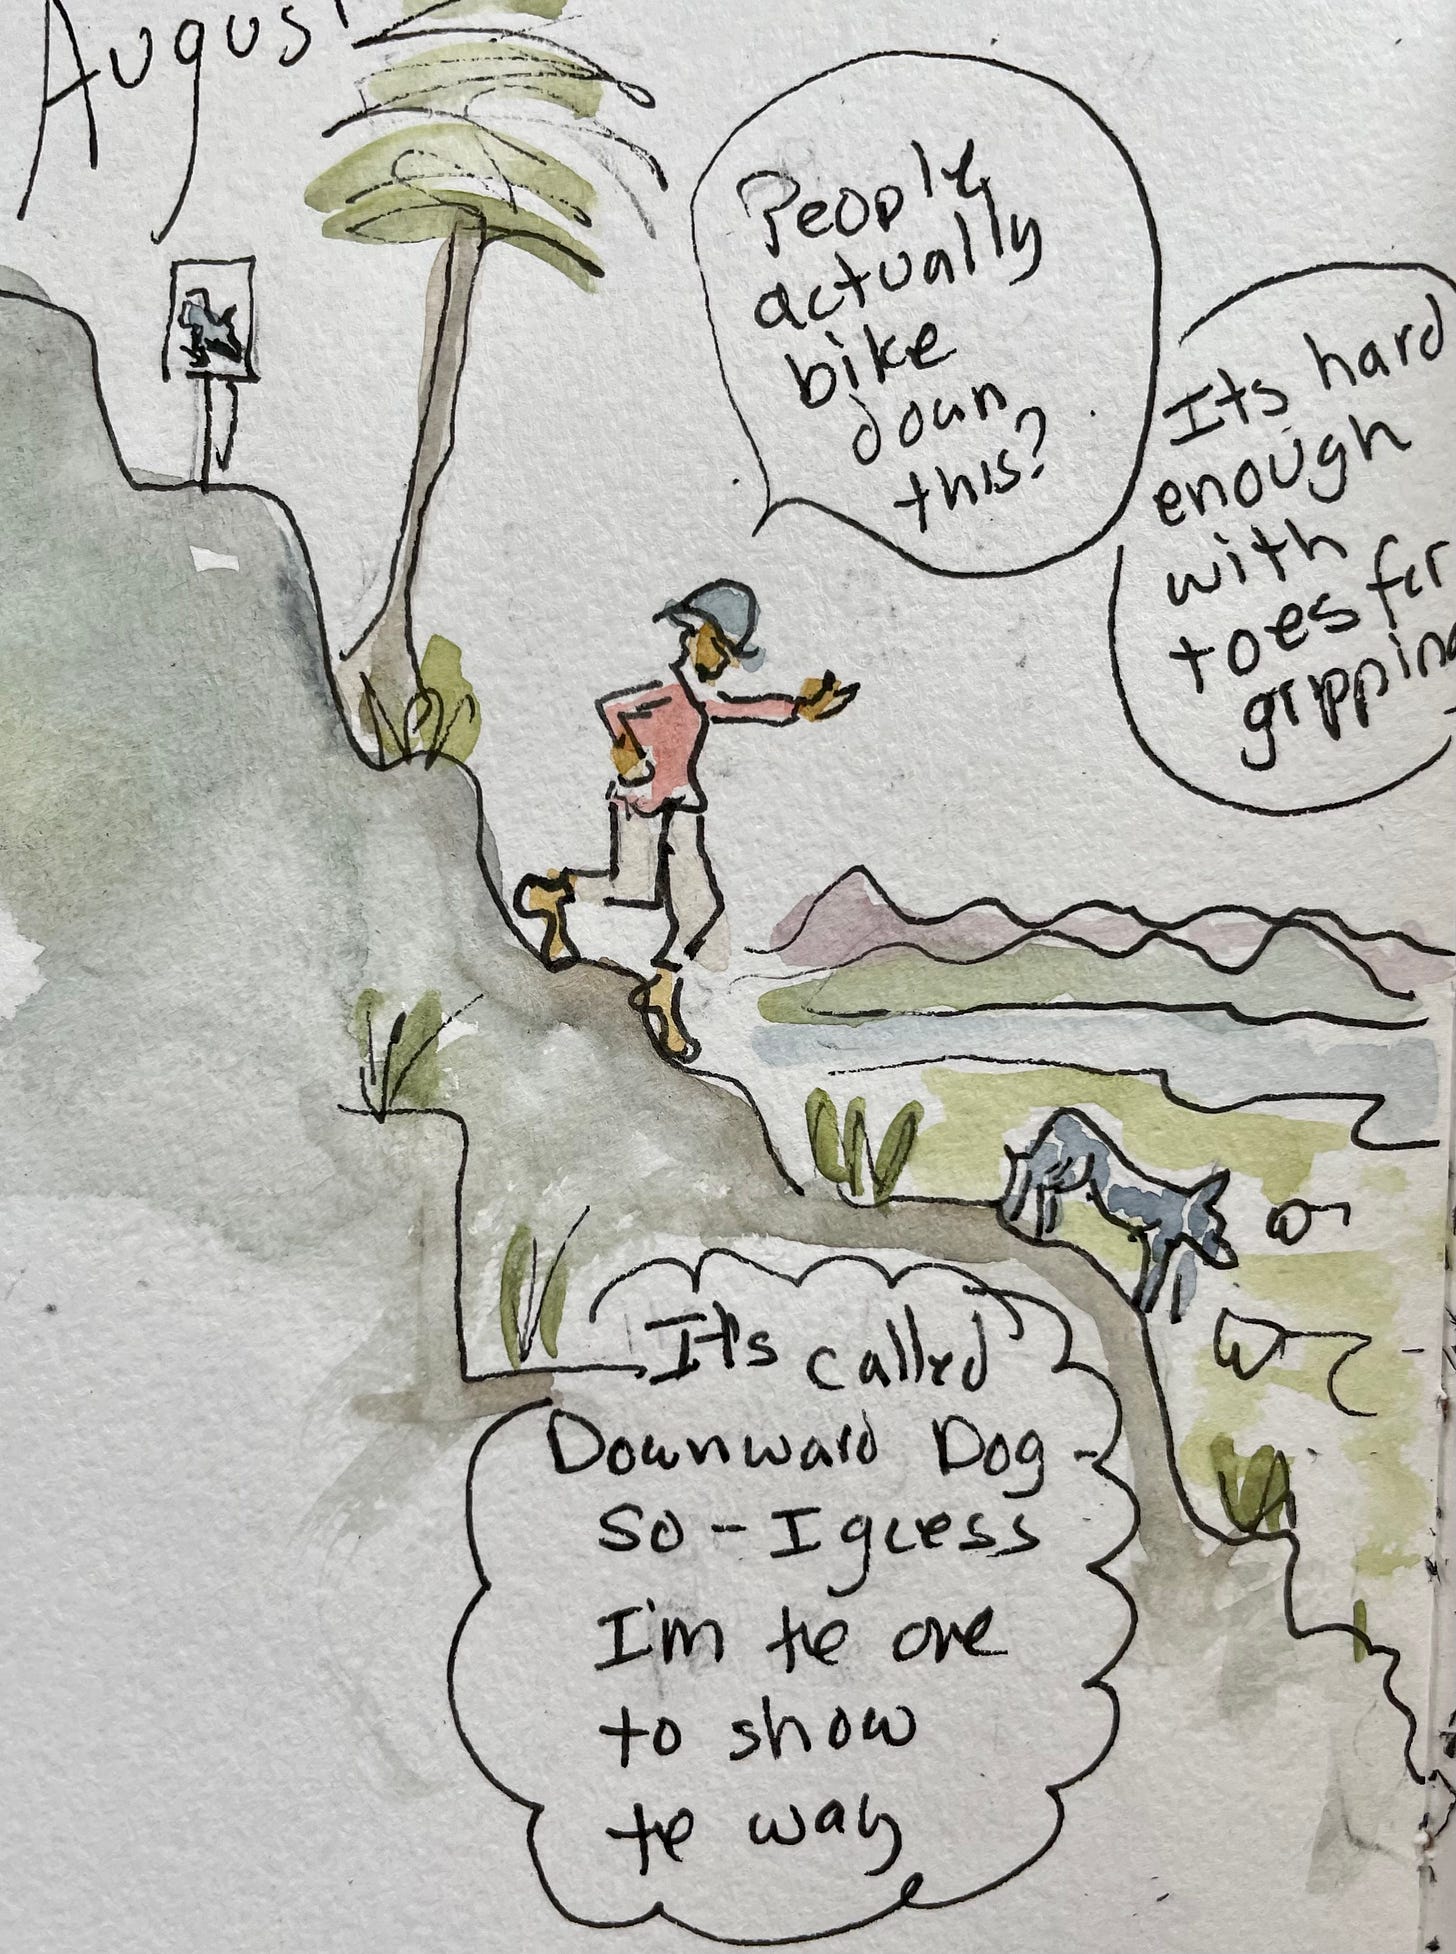 Augus
People
actually
bike
down
this?
Its hard
enough
with
toes for
gripping
It's called
Downward Dog -
so - I guess
I'm the one
to show
the way